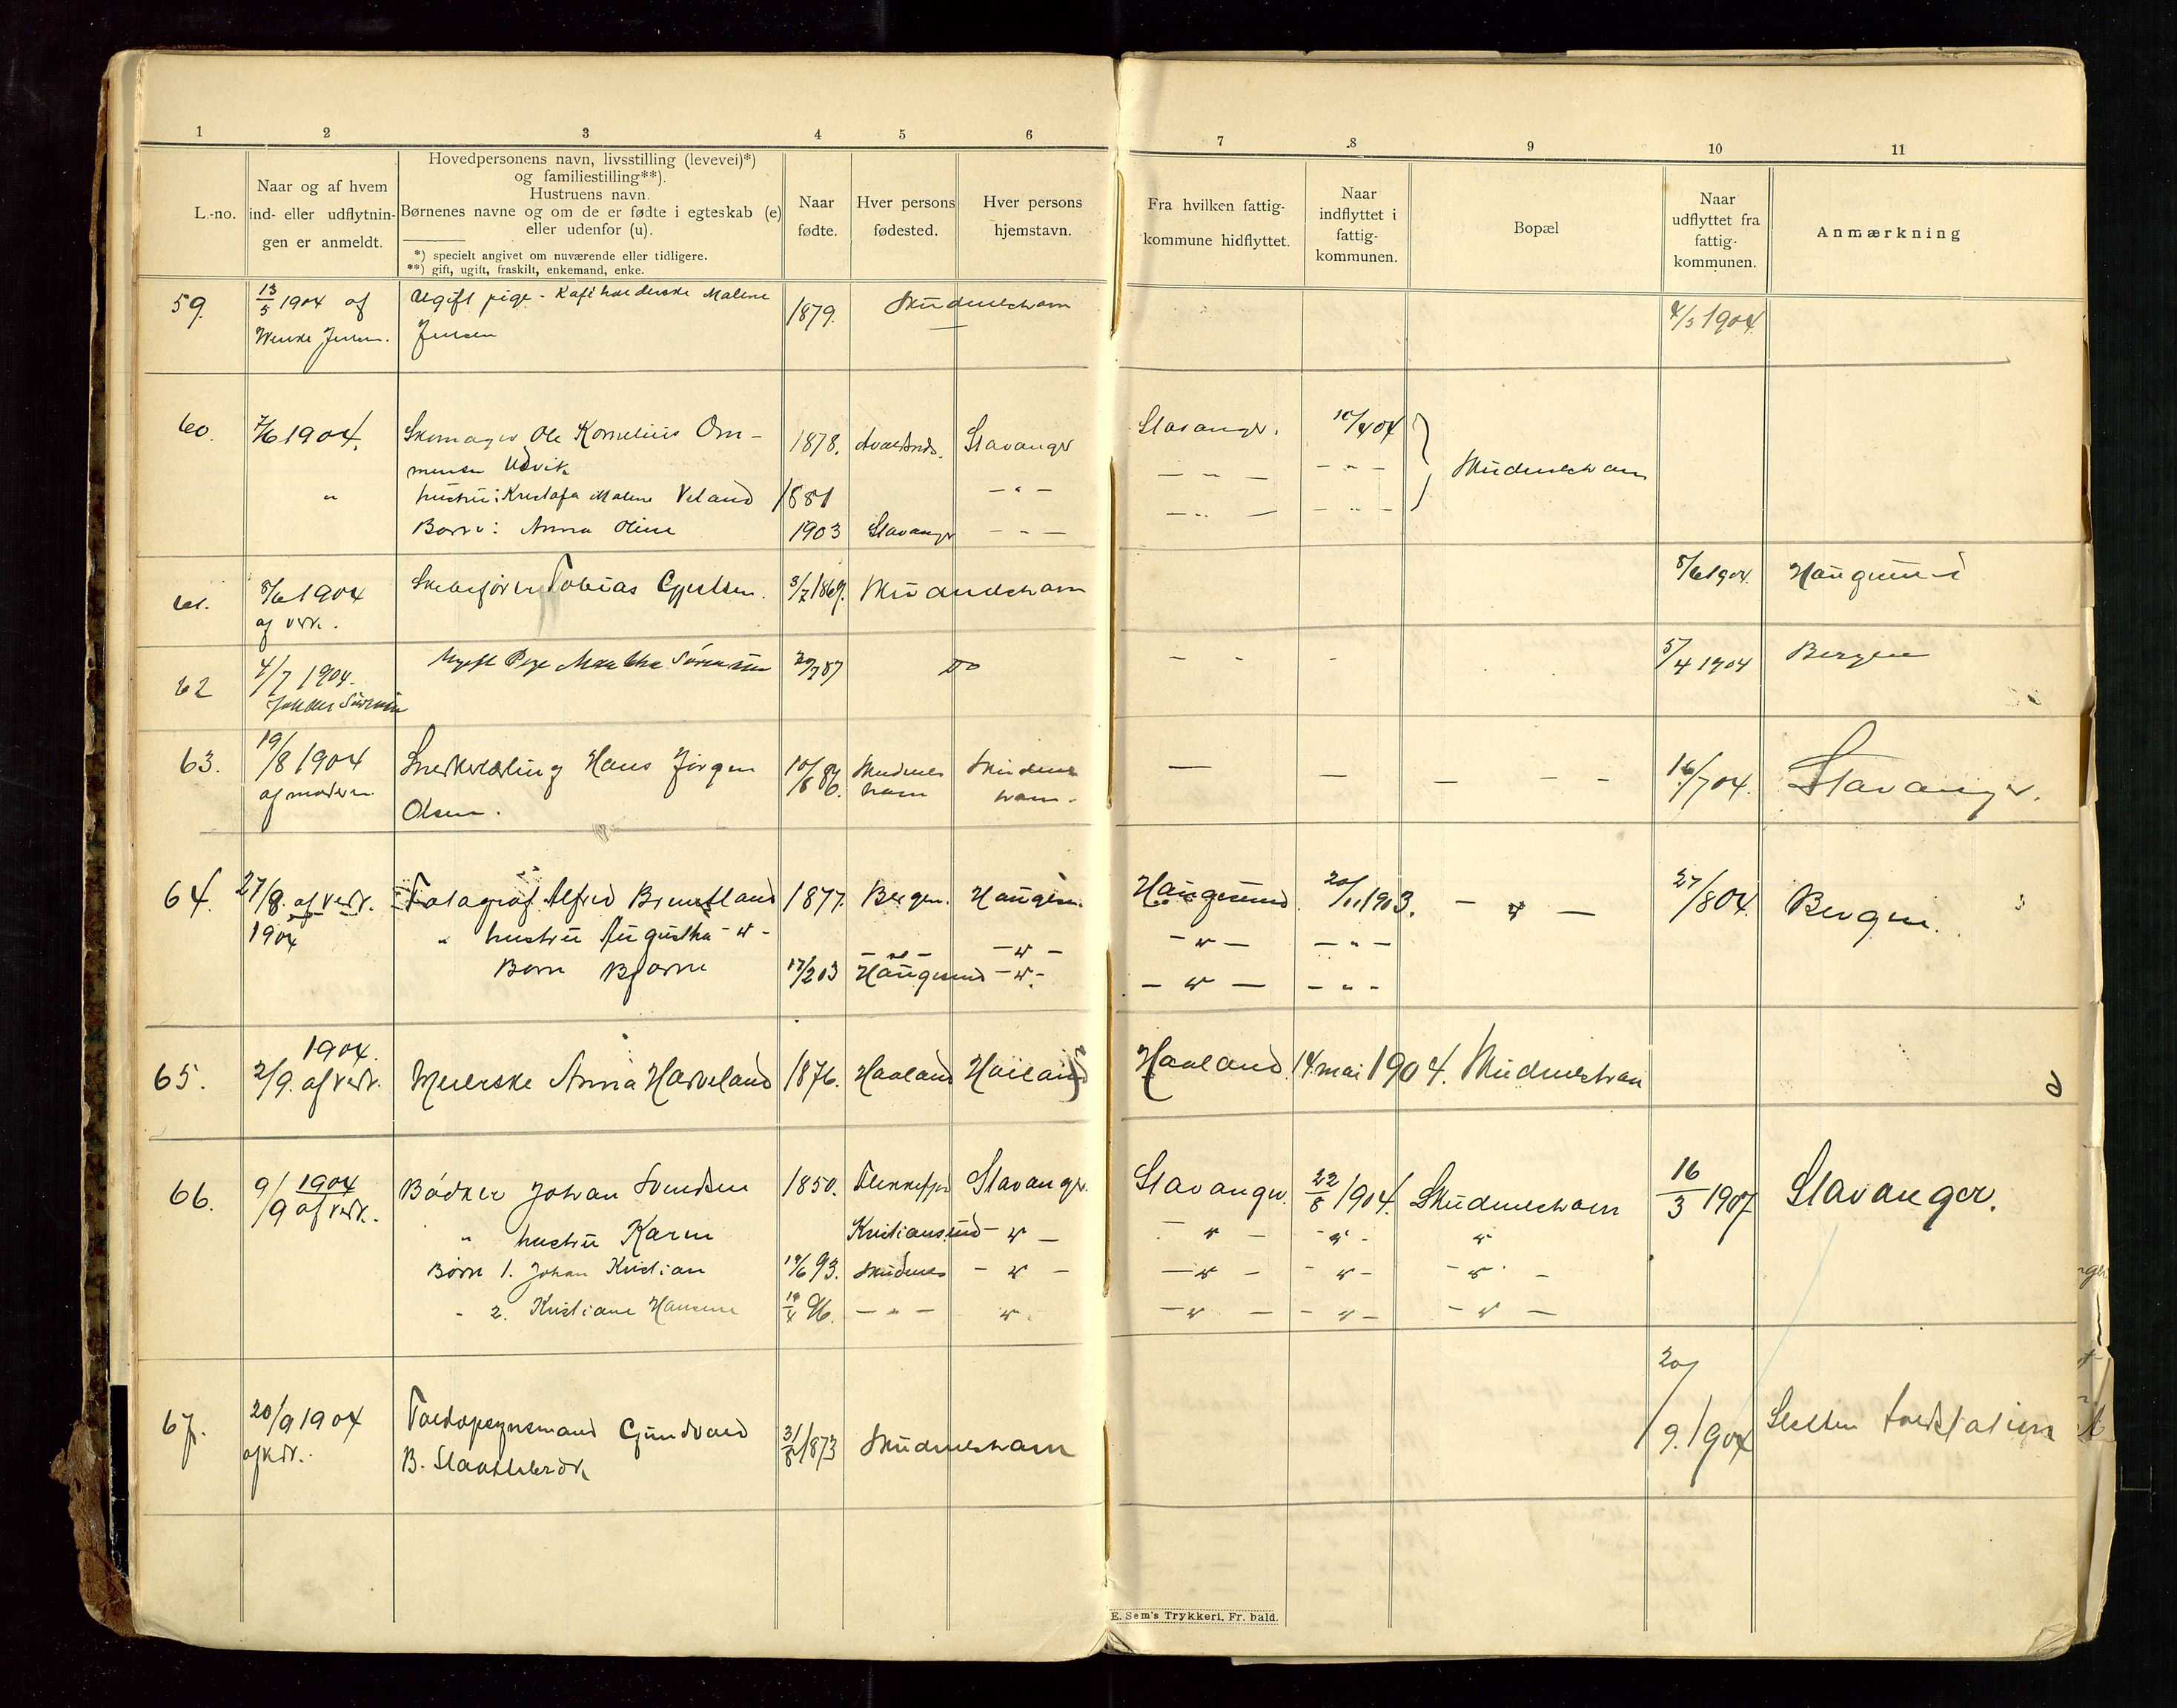 1 2 3 4 5 6 7 8 9 10 11
L.-no.
Naar og af hvem
ind- eller udflytnin-
gen er anmeldt.
Hovedpersonens navn, livsstilling (levevei)*)
og familiestilling**).
Hustruens navn.
Børnenes navne og om de er fødte i egteskab (e)
eller udenfor (u).
*) specielt angivet om nuværende eller tidligere.
**) gift, ugift, fraskilt, enkemand, enke.
Naar
fødte.
Hver persons
fødested.
Hver persons
hjemstavn.
Fra hvilken fattig-
kommune hidflyttet.
Naar
indflyttet i
fattig-
kommunen.
Bopæl
Naar
udflyttet fra
fattig-
kommunen.
Anmærkning
59. 13/5 1904 af Ugift pige - Malene 1879. Skudeneshavn 4/5 1904
Jensen. Jensen
60. 7/6 1904. Skomager Ole Kornelius Om- 1878. Stavanger Stavanger. 10/4 04
mensen Udvik — " — — " — Skudeneshavn
" hustru: Malene Veland 1881 — " — — " — — " —
Barn: Anna Oline 1903 Stavanger — " —
61. 8/6 1904 Tobias 1869. Skudeneshavn 8/6 1904. Haugesund
af vedk.
62 4/7 1904. Ugift Pige Martha Sørensen 20/7 87 Do - - - 5/4 1904 Bergen
63. 19/8 1904 Snedkerlærling Hans Jørgen 10/8 86. Skudenes Skudenes — — — - - 16/7 04. Stavanger.
af moderen havn havn.
Olsen.
64. 27/8. af vedk. Fotograf Alfred 1877. Bergen. Hauges. Haugesund 20/11 1903. - " — 27/8 04. Bergen.
1904 " hustru Augustha - " - — " — — " — - " — — " —
Barn Bjarne 17/2 03 Haugesund - " - — " — - " -
65. 1904.
2/9. af vedk. Meierske Anna Haveland 1876. Haaland Haaland Haaland 14 mai 1904. Skudeneshavn
66. 9/9 1904 Bødker Johan Svendsen 1850. Flekkefj. Stavanger. Stavanger. 22/8 1904. Skudeneshavn 16/3 1907 Stavanger.
af vedk. " hustru Karen Kristiansund - " — - " — - " - "
Børn 1. Johan Kristian 93. Skudenes - " — — " — - " - - " —
" 2. Kristiane 96. — " — " — " — - " — - " —
67. 20/9 1904 Toldopsynsmand Gundvald 31/8 1873 Skudeneshavn 20/9. 1904 toldstation
af vedk. B.
E. Sem's Trykkeri, Fr. hald.